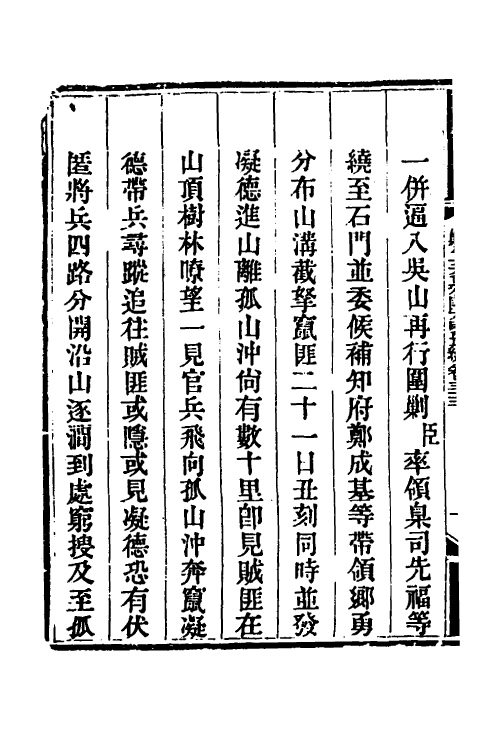 一併逼入吳山再行圍剿臣率領臬司先福等
繞至石門並委候補知府鄭成基等帶領鄉勇
分布山溝截拏竄匪二十一日丑刻同時並發
凝德進山離孤山沖尙有數十里卽見賊匪在
山頂樹林瞭望一見官兵飛向孤山沖奔竄凝
德帶兵尋蹤追往賊匪或隱或見凝德恐有伏
匿將兵四路分開沿山逐澗到處窮搜及至孤